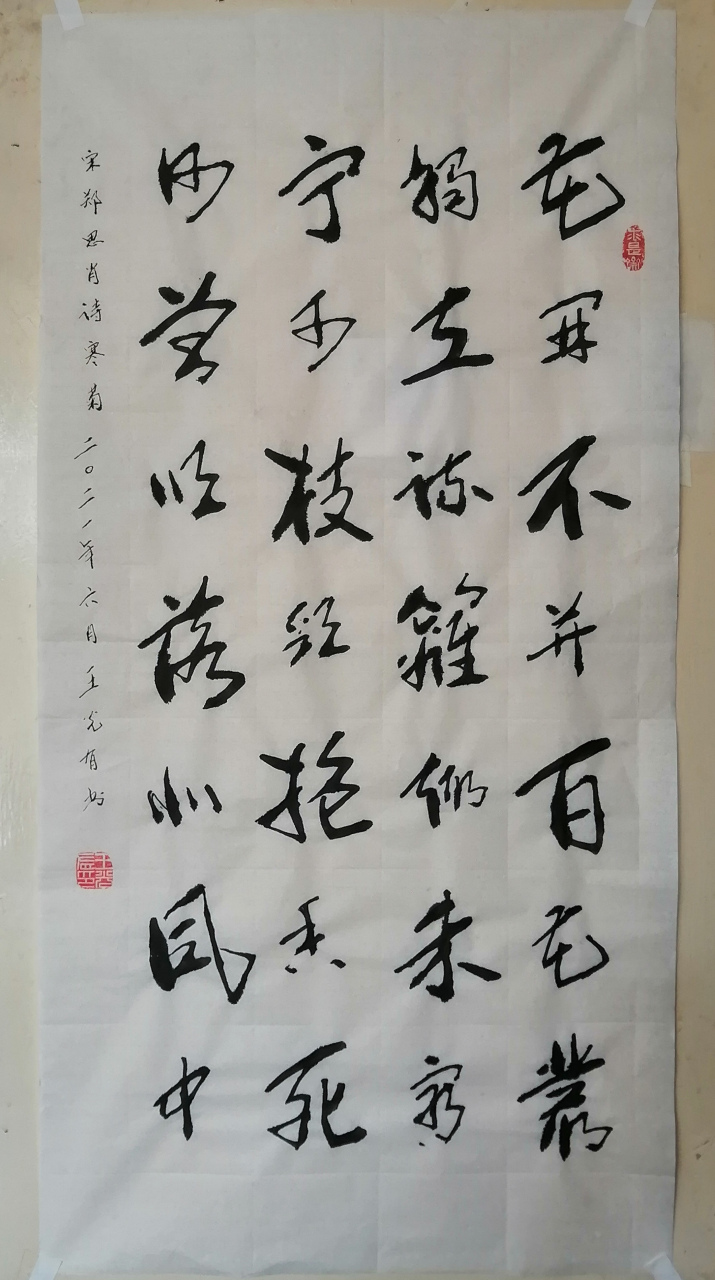 花開不并百花叢
獨立疎籬趣未窮
宁可枝頭抱香死
何曾吹落北風中
宋郑思肖诗寒菊 二〇二一年六月 王光书